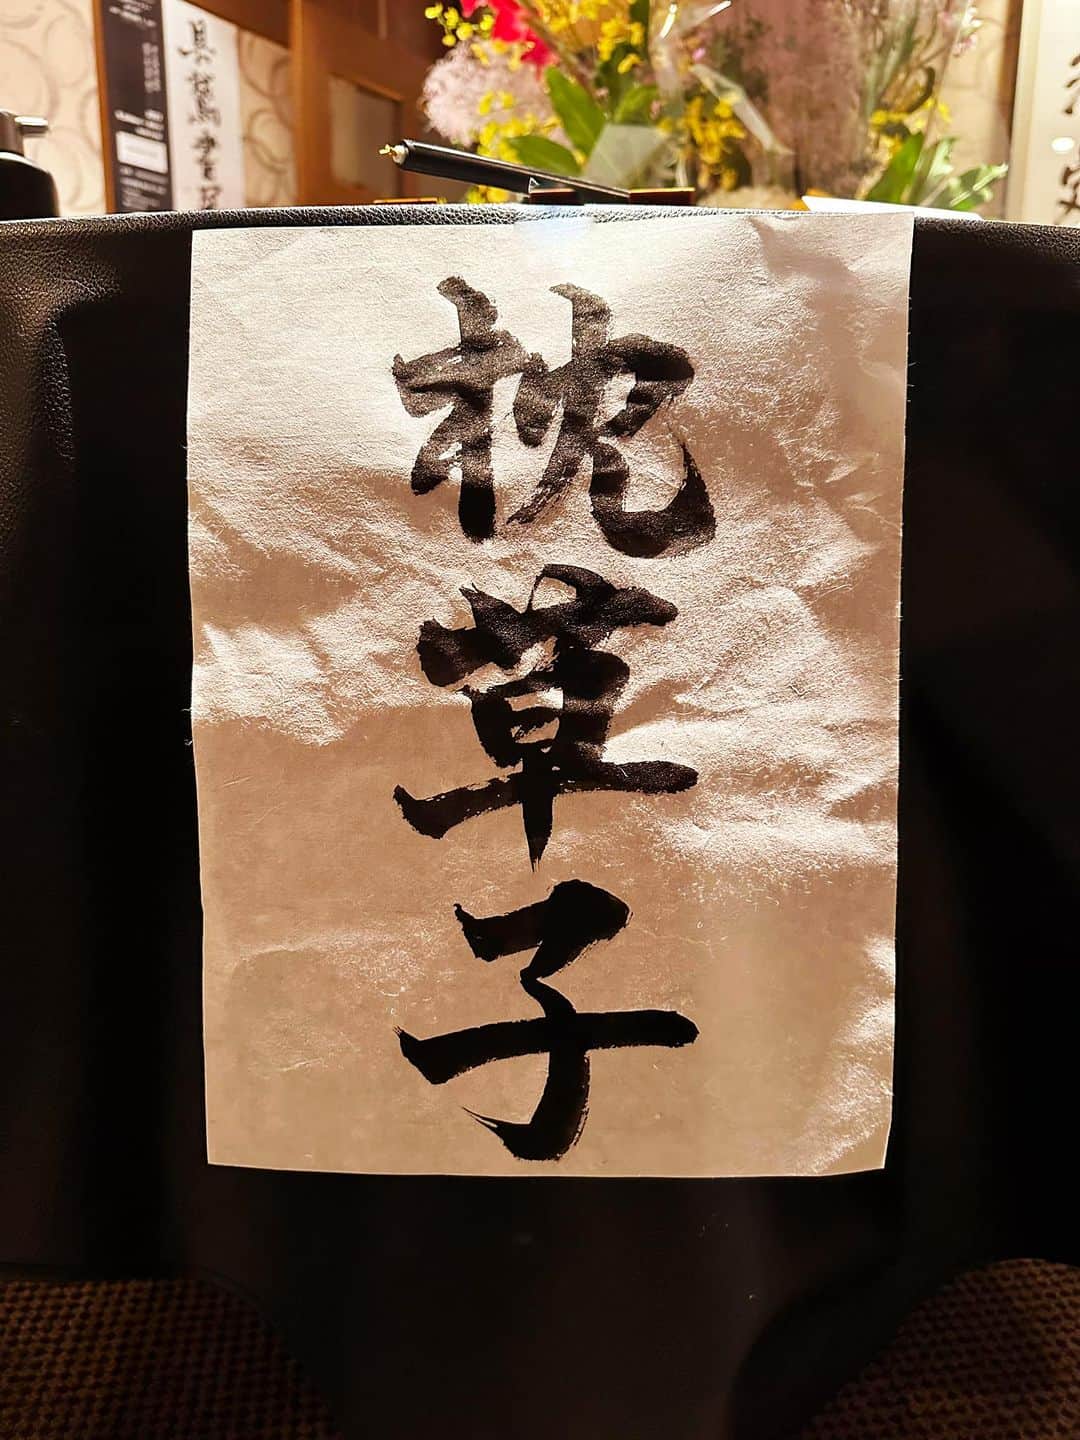 枕草子